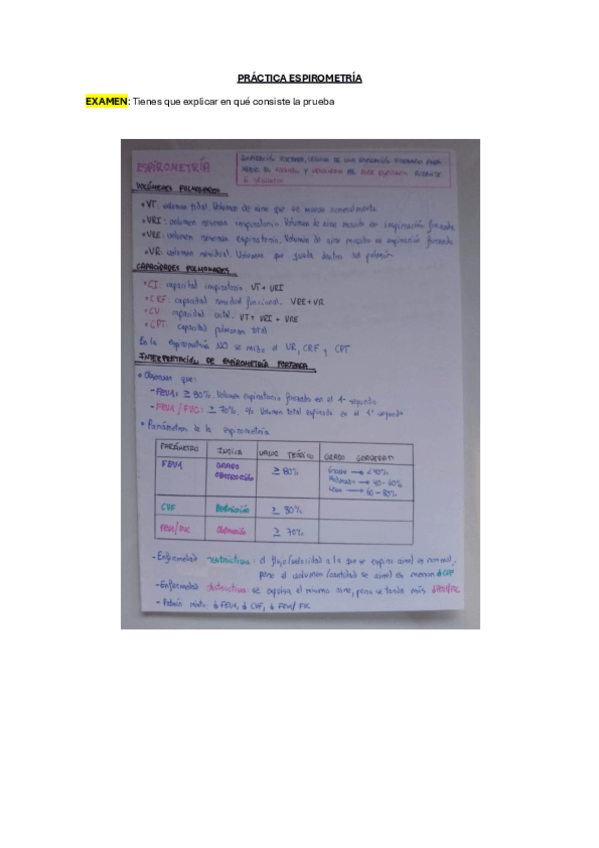 PRÁCTICA ESPIROMETRÍA
EXAMEN: Tienes que explicar en qué consiste la prueba
ESPIROMETRÍA
ESPIRACIÓN FORZADA, FORZADO PARA
MEDIR EL VOLUMEN Y VELOCIDAD DE AIRE ESPIRADO DURANTE
6 SEGUNDOS
VOLÚMENES PULMONARES
VT: volumen total. Volumen de aire que se mueve normalmente
VRI: volumen reserva inspiratorio. Volumen de aire en inspiración forzada
VRE: volumen reserva espiratorio. Volumen de aire en espiración forzada
VR: volumen residual. Volumen que queda dentro del pulmón
CAPACIDADES PULMONARES
CI: capacitat inspiratoria. VT + VRI
CRF: capacitat residual funcional. VRE + VR
CV: capacidad vital. VT + VRI + VRE
CPT: capacitat pulmonar total
En la espirometría NO se mide el VR, CRF y CPT
INTERPRETACIÓN DE ESPIROMETRÍA FORZADA
Observar que:
- FEV1: ≥ 80%. Volumen espiratorio forzado en el 1er segundo
- FEV1/FVC: ≥ 70%. % Volumen total espirado en el 1er segundo
Parámetros de la espirometría
PARÁMETRO INDICA VALOR TEÓRICO GRADO GRAVEDAD
FEV1 GRADO OBSTRUCCIÓN ≥ 80% Grave → < 40%
Moderado → 40-60%
Leve → 60-80%
CVF ≥ 80%
FEV1/FVC Obstrucción ≥ 70%
- Enfermedad restrictiva: el flujo/velocidad a la que se espira aire es normal,
pero el volumen/cantidad de aire es menor ↓CVF
- Enfermedad obstructiva: se expulsa el mismo aire, pero se tarda más ↓FEV1/FVC
- Patrón mixto ↓FEV1, ↓CVF, ↓FEV1/FVC